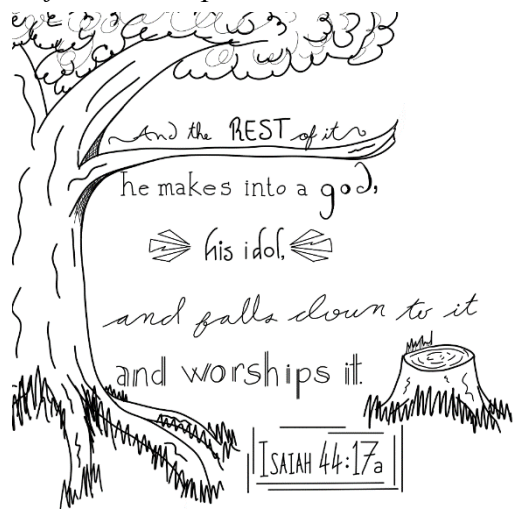 And the REST of it
he makes into a god,
his idol,
and falls down to it
and worships it.
ISAIAH 44:17a